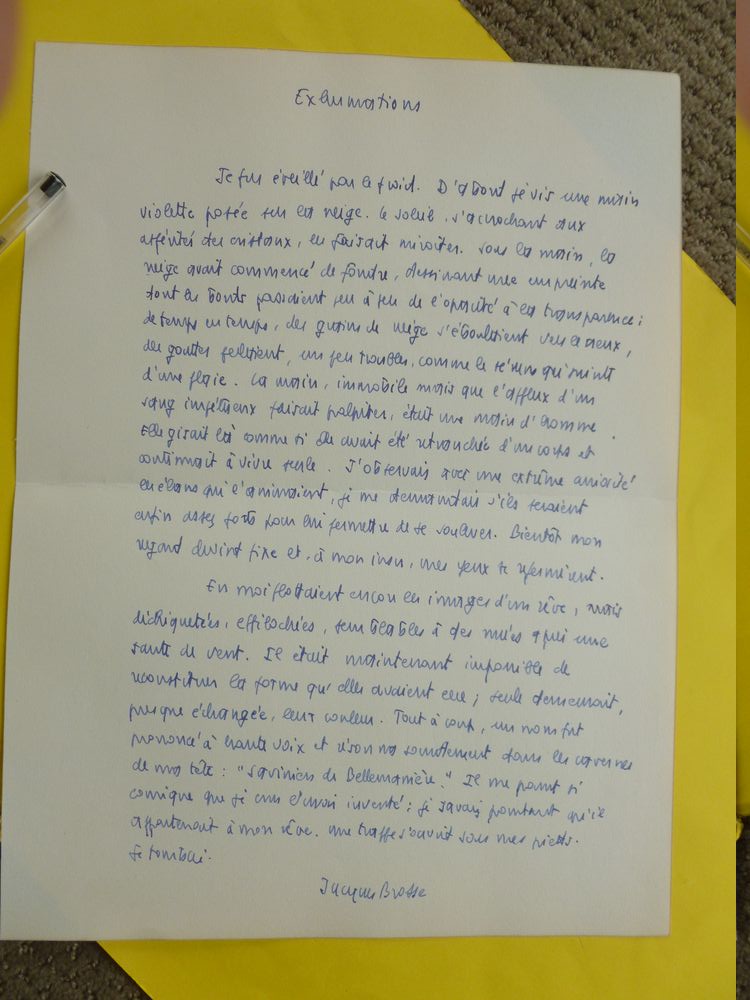 Exhumations
Je fus éveillé par le froid. D'abord je vis une main
violette posée sur la neige. Le soleil, s'accrochant aux
aspérités des cristaux, les faisait miroiter. Sous la main, la
neige avait commencé de fondre, dessinant une empreinte
dont les bords passaient peu à peu de l'opacité à la transparence ;
de temps en temps, des grains de neige s'éboulaient vers le creux,
des gouttes perlaient, un peu troubles, comme le sérum qui suinte
d'une plaie. La main, immobile mais que l'afflux d'un
sang impétueux faisait palpiter, était une main d'homme.
Elle gisait là comme si elle avait été retranchée d'un corps et
continuait à vivre seule. J'observais avec une extrême anxiété
les élans qui l'animaient, je me demandais s'ils seraient
enfin assez forts pour lui permettre de se soulever. Bientôt mon
regard devint fixe et, à mon insu, mes yeux se refermèrent.
En moi flottaient encore les images d'un rêve, mais
déchiquetées, effilochées, semblables à des nuées après une
saute de vent. Il était maintenant impossible de
reconstituer la forme qu'elles avaient eue ; seule demeurait,
presque échangée, leur couleur. Tout à coup, un nom fut
prononcé à haute voix et résonna sourdement dans les cavernes
de ma tête : "Savinien de Bellemanière." Il me parut si
comique que je crus l'avoir inventé ; je savais pourtant qu'il
appartenait à mon rêve. Une trappe s'ouvrit sous mes pieds.
Je tombai.
Jacques Brosse